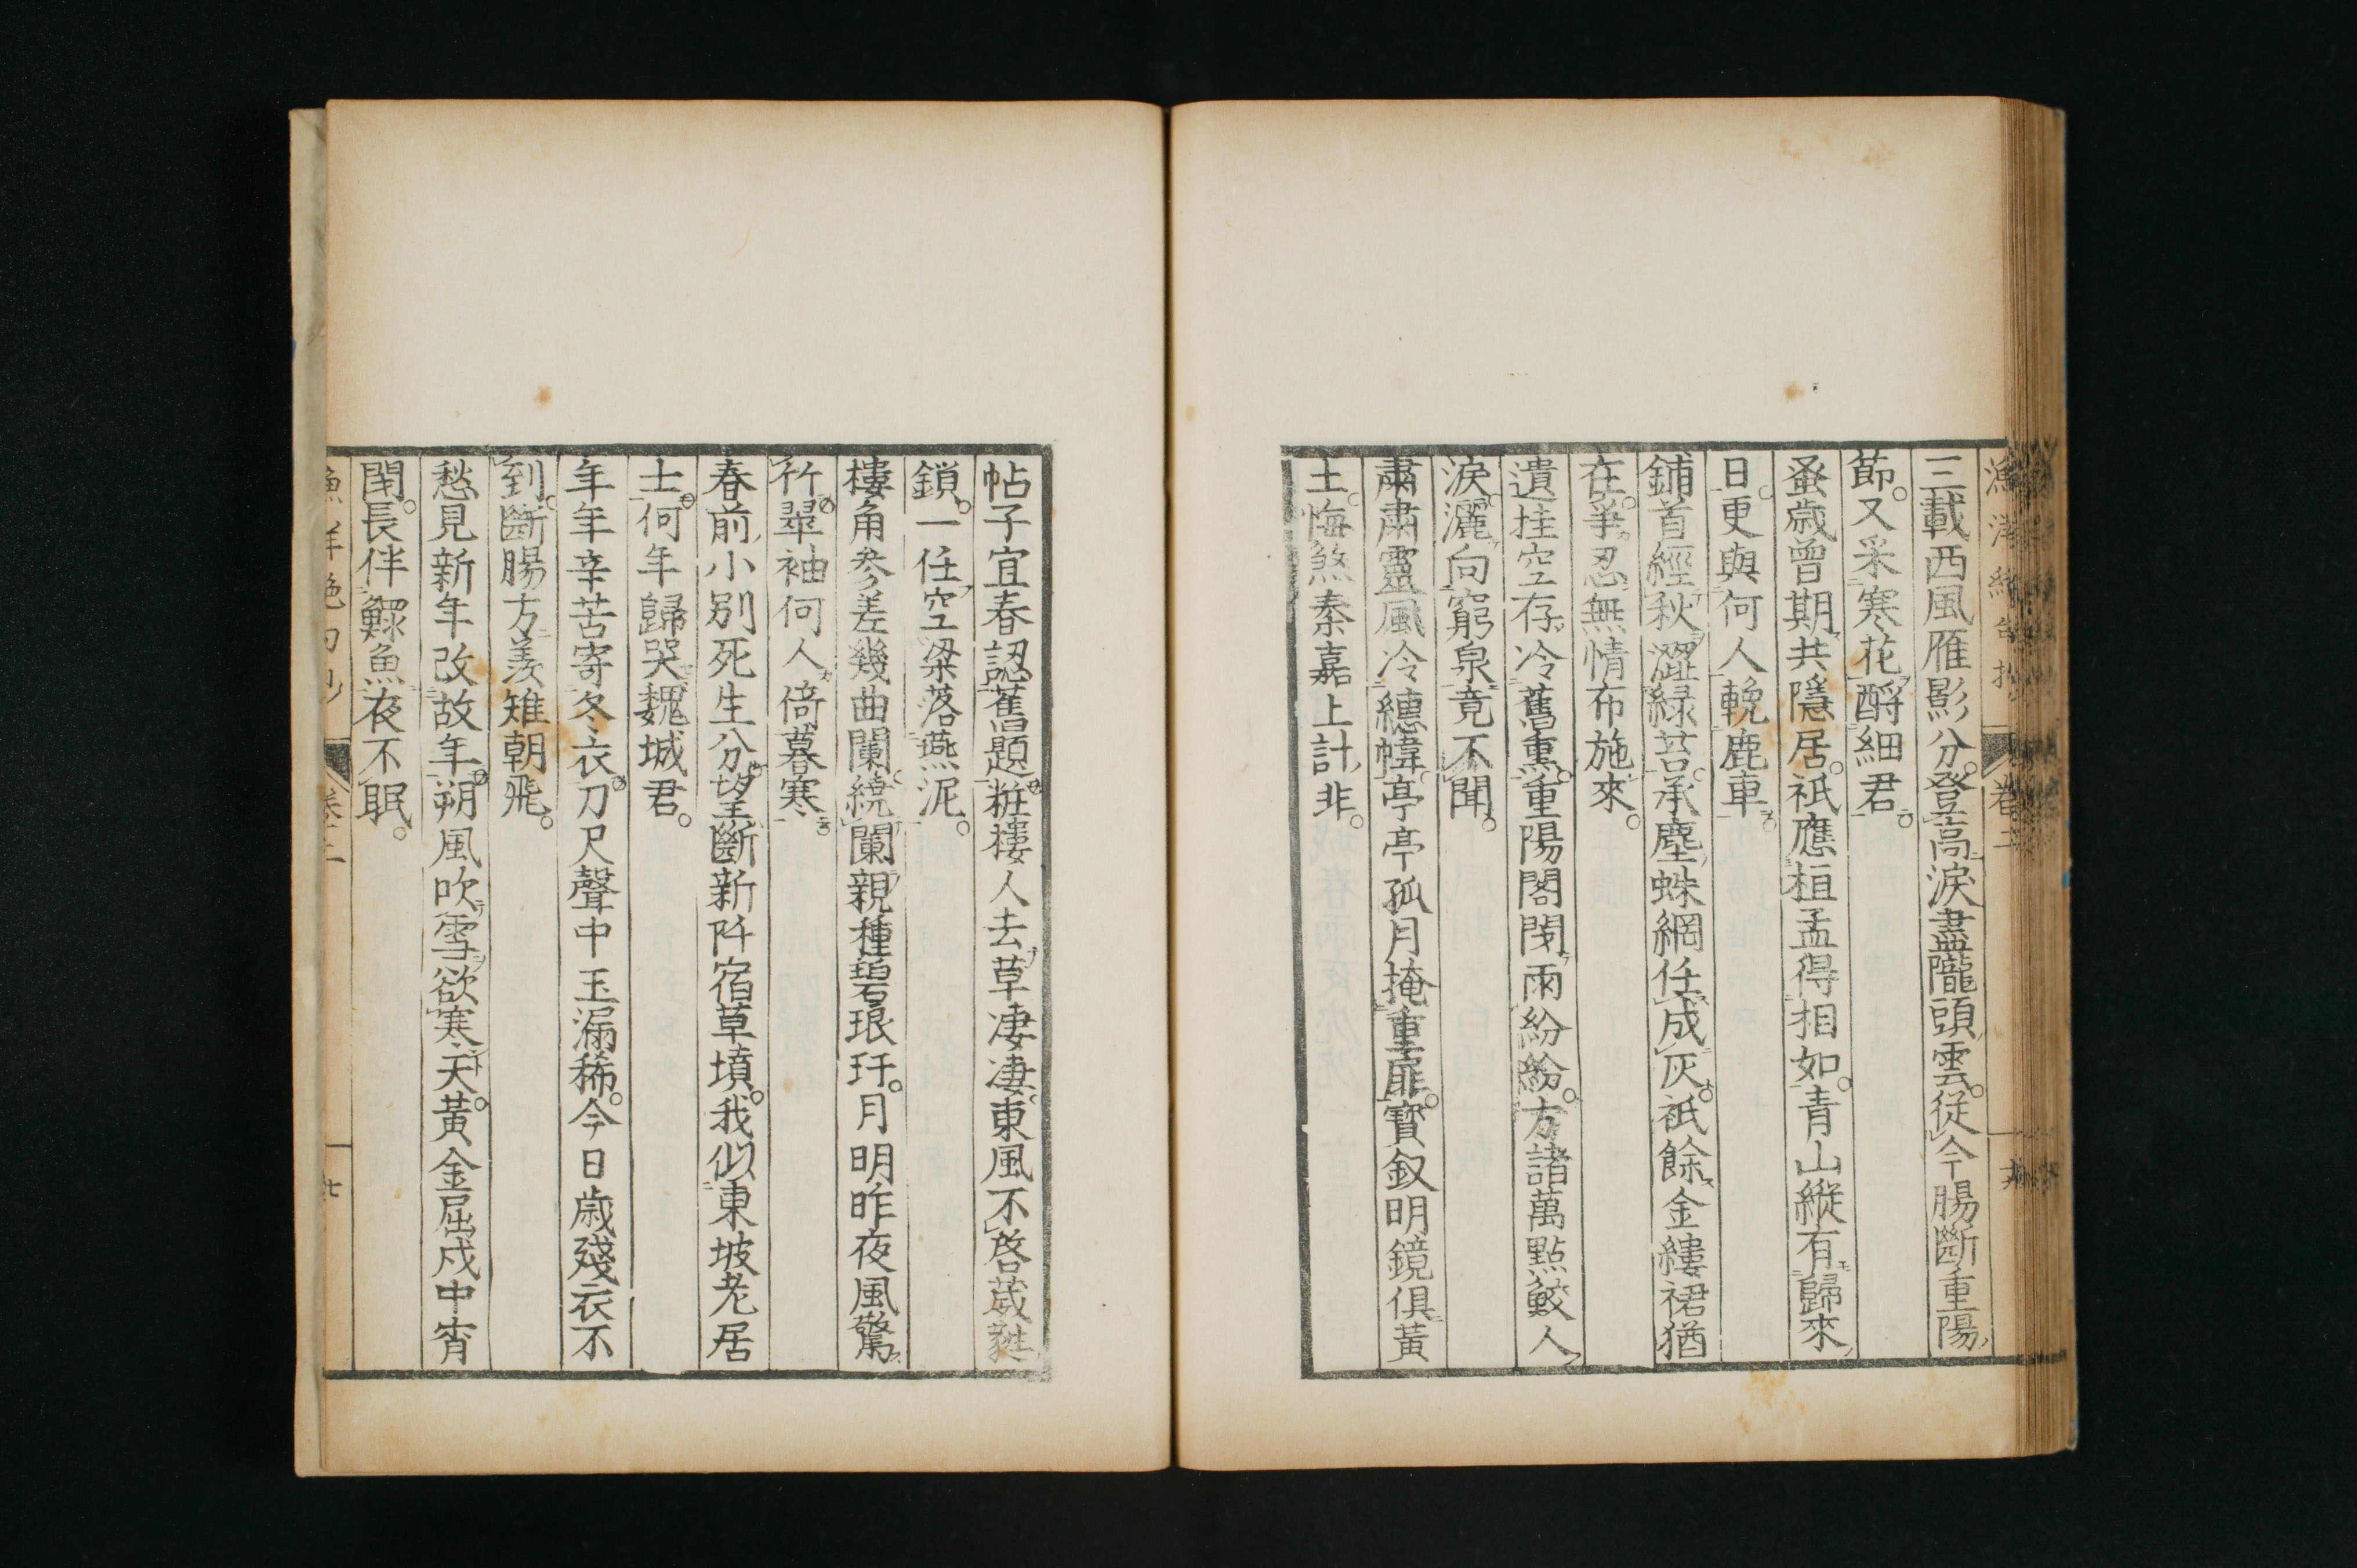 漁洋絶句抄 卷二
三載西風雁影分登高淚盡隴頭雲從今腸斷重陽
節又采寒花酹細君
蚤歳曾期共隱居祇應桓孟得相如青山縱有歸來
日更與何人輓鹿車
鋪首經秋澀綠苔承塵蛛網任成灰祇餘金縷裙猶
在爭忍無情布施來
遺挂空存冷舊熏重陽閣閉雨紛紛方諸萬點鮫人
淚灑向窮泉竟不聞
肅肅靈風冷繐幃亭亭孤月掩重扉寶釵明鏡俱黃
土悔煞秦嘉上計非
帖子宜春認舊題粧樓人去草凄凄東風不啓葳蕤
鎖一任空梁落燕泥
樓角參差幾曲闌繞闌親種碧琅玕月明昨夜風驚
竹翠袖何人倚暮寒
春前小別死生分望斷新阡宿草墳我似東坡老居
士何年歸哭魏城君
年年辛苦寄冬衣刀尺聲中玉漏稀今日歳殘衣不
到斷腸方羨雉朝飛
愁見新年改故年朔風吹雪欲寒天黃金屈戌中宵
閉長伴鰥魚夜不眠
漁洋絶句抄 卷二 廿